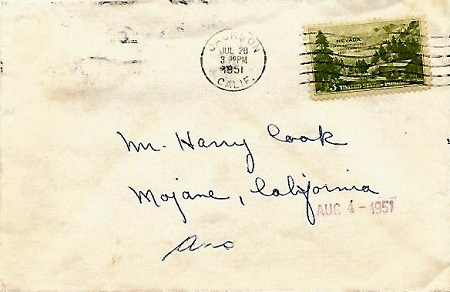 JACKSON
JUL 28
3 PM
1951
CALIF.
NEVADA
3¢ UNITED STATES POSTAGE
Mr. Harry Cook
Mojane, California
AUG 4 - 1951
Ans